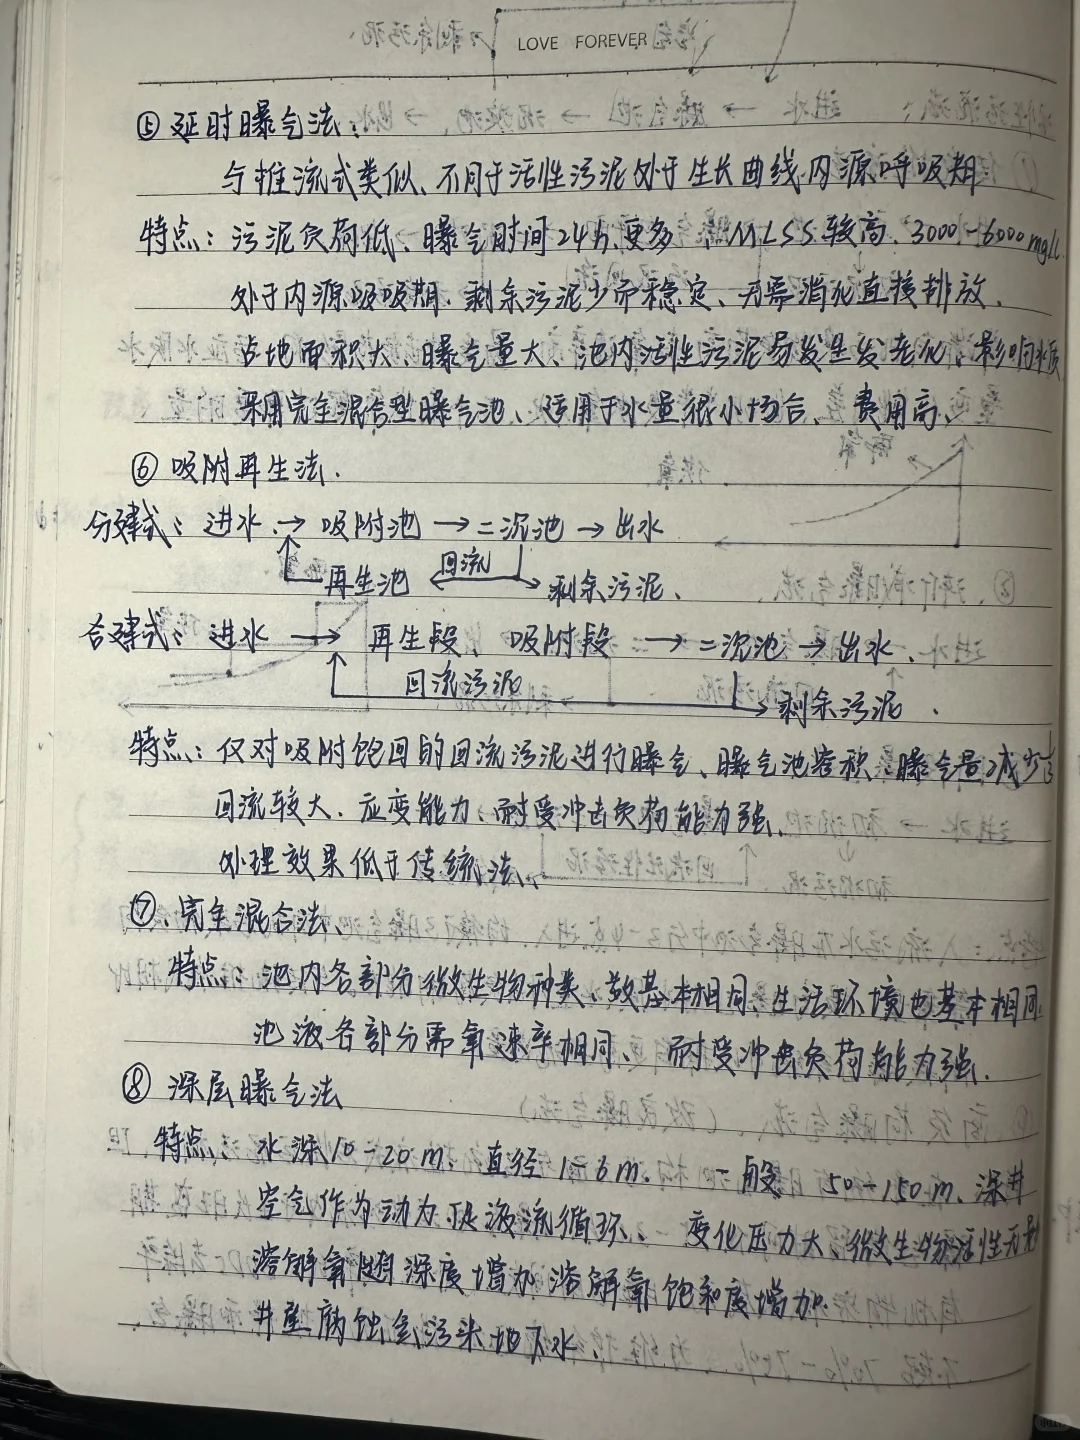 LOVE FOREVER
⑤ 延时曝气法:
与推流式类似、不同于活性污泥处于生长曲线内源呼吸期
特点: 污泥负荷低、曝气时间24h更多 MLSS较高、3000-6000mg/L
处于内源吸吸期. 剩余污泥少而稳定、无需消化直接排放、
占地面积大、曝气量大、池内活性污泥易发生发老化、影响水质
采用完全混合型曝气池、适用于水量很小场合、费用高、
⑥ 吸附再生法.
分建式: 进水 → 吸附池 → 二沉池 → 出水
再生池 回流 剩余污泥、
合建式: 进水 → 再生段, 吸附段 → 二沉池 → 出水、
回流污泥 剩余污泥.
特点: 仅对吸附饱回的回流污泥进行曝气、曝气池容积、曝气量减少
回流较大. 应变能力、耐受冲击负荷能力强、
处理效果低于传统法、
⑦. 完全混合法、
特点: 池内各部分微生物种类、数基本相同、生活环境也基本相同.
池液各部分需氧速率相同、耐受冲击负荷能力强.
⑧ 深层曝气法
特点、水深10-20m、直径1-6m. 一般50-150m、深井
空气作为动力 促液流循环、变化压力大、微生物活性无影
溶解氧随深度增加 溶解氧饱和度增加.
井壁腐蚀会污染地下水.